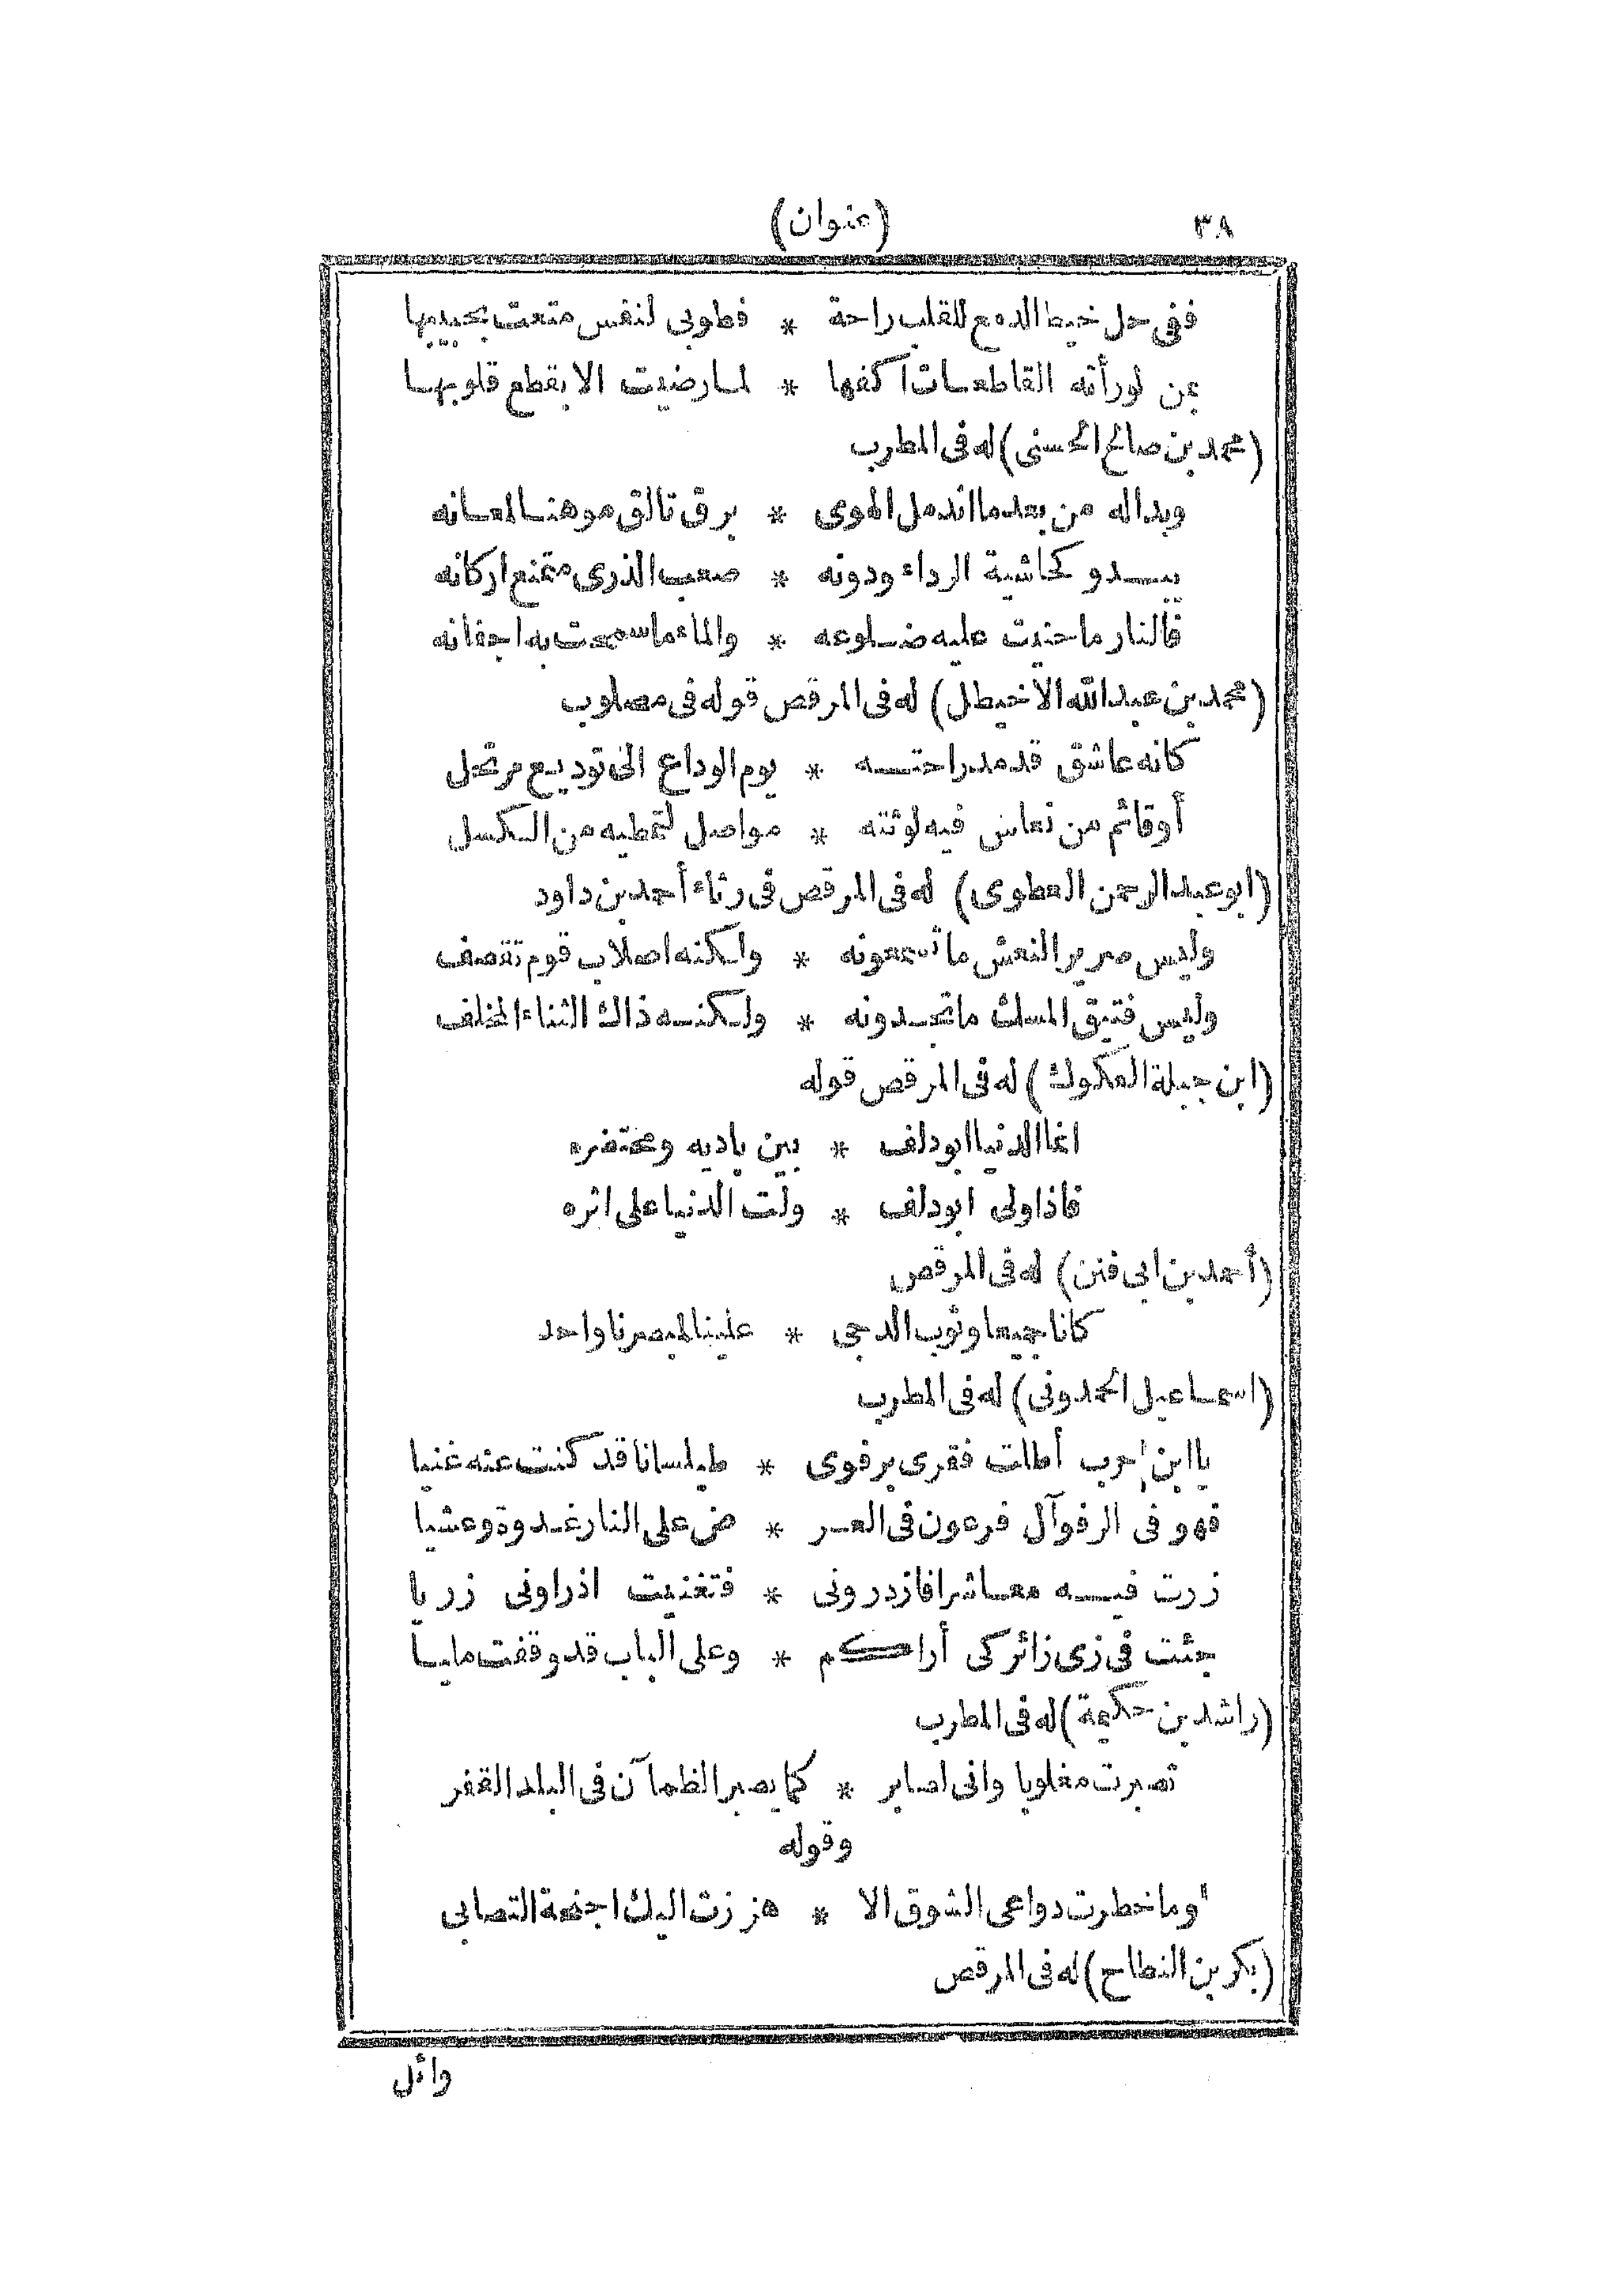 ٣٨ (عنوان)
ففى حل خيط الدمع للقلب راحة * فطوبى لنفس متعت بحبيبها
بمن لو رأته القاطعات اكفها * لما رضيت الا بقطع قلوبها
(محمد بن صالح الحسنى) له فى المطرب
وبداله من بعد ما اندمل الهوى * برق تالق موهنا لمعانه
يبدو كحاشية الرداء ودونه * صعب الذرى متمنع اركانه
فالنار ما حنيت عليه ضلوعه * والماء ما سمحت به اجفانه
(محمد بن عبد الله الاخيطل) له فى المرقص قوله فى مصلوب
كانه عاشق قد مد راحته * يوم الوداع الى توديع مرتحل
أو قائم من نعاس فيه لوثته * مواصل لتمطيه من الكسل
(ابو عبد الرحمن العطوى) له فى المرقص فى رثاء أحمد بن داود
وليس صرير النعش ما تسمعونه * ولكنه اصلاب قوم تقصف
وليس فتيق المسك ما تجدونه * ولكنه ذاك الثناء المخلف
(ابن جبلة العكوك) له فى المرقص قوله
انما الدنيا ابو دلف * بين باديه ومحتضره
فاذا ولى ابو دلف * ولت الدنيا على اثره
(أحمد بن ابى فنن) له فى المرقص
كانا جميعا وثوب الدجى * علينا لمبصرنا واحد
(اسماعيل الحمدونى) له فى المطرب
يا ابن حرب أطلت فقرى برفوى * طيلسانا قد كنت عنه غنيا
فهو فى الرفو آل فرعون فى العر * ض على النار غدوة وعشيا
زرت فيه معاشرا فازدرونى * فتغنيت اذ راونى زريا
جئت فى زى زائر كى أراكم * وعلى الباب قد وقفت مليا
(راشد بن حكيمة) له فى المطرب
تصبرت مغلوبا وانى اصابر * كما يصبر الظمآن فى البلد القفر
وقوله
وما خطرت دواعى الشوق الا * هززت اليك اجنحة التصابى
(بكر بن النطاح) له فى المرقص
وائل